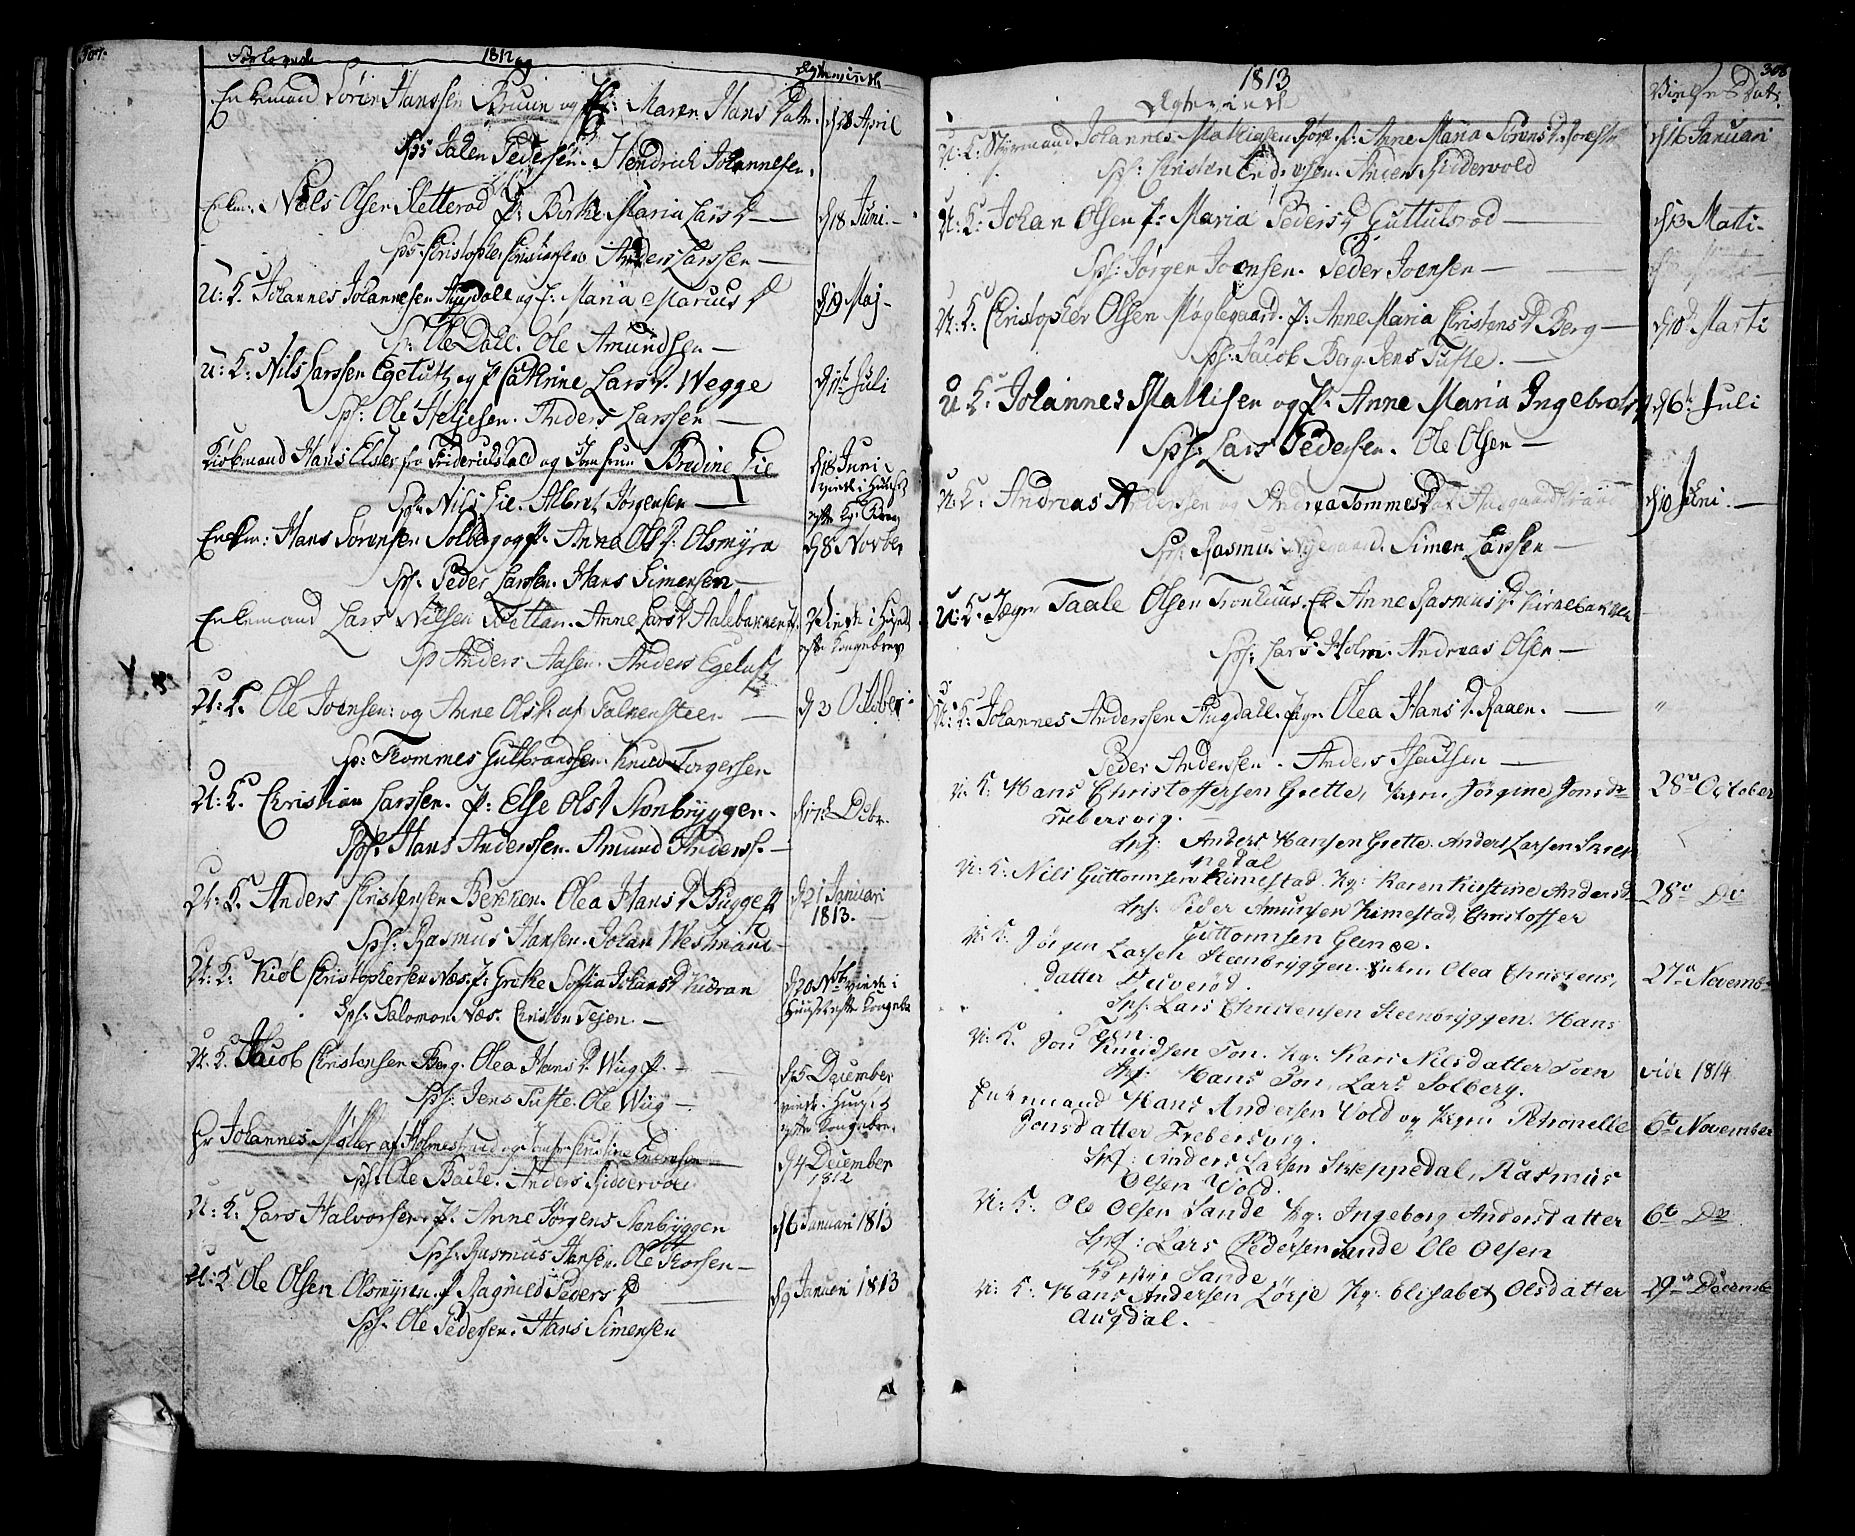 307.
Forlovede 1812 og Egteviede
Enkemand Søren Hanssen Bruun og P: Maren Hans Datr. d 28 April
Sps Jalen Pedersen. Hendrich Johannesen.
Enkm: Niels Olsen Sletterød P: Birthe Maria Lars D — d 18 Juni. -
Sps Christopher Christensen Anders Larssen —
U: K. Johannes Johannesen Augdall og P: Maria Marcus D d 19 Maj -
Sp: Ole Dall. Ole Amundsen —
U: K: Nils Larssen Egetuft og P Cathrine Lars D. Wegge Juli
Sps: Ole Heljesen. Anders Larssen —
Kiøbmand Hans Elster fra Fridericstad og Jomfrue Bredine Lie d 18 Juni
viede i Huuset
Sps: Nils Lie. Albret Jørgensen — efter Kg. Brev
Enkm: Hans Sørensen Solberg og P. Anne Ols D. Olsmyra d 8 Novber
Sps. Peder Larssen. Hans Simensen —
Enkemand Lars Nilsen Anne Lars D Aalebakken Viede i Huset
efter Kongebrev
Sp Anders Aasen. Anders Egetuft
U: K. Ole Joensen og Anne Ols af Falkensteen — d 3 Octobr.
Sp: Thommes Gulbrandsen. Knud Torgersen
U: K. Christian Larssen. P: Else Ols D Stenbryggen. Debr.
Sps. Hans Anderssen. Amund Anderss. —
U. K. Anders Christensen Bekken. Olea Hans D Bugge P d 21 Januari
1813. —
Sps: Rasmus Hansen. Johan Westmand —
U. K: Kiøl Christophersen Næs. P: Grethe Sofia Johans D d 20 Nobr viede i
Huuset efter Kongebr
Sps. Salomon Næs. Christen Tejen. —
U. K. Jacob Christensen Berg. Olea Hans D. Wiig P. — d 5 December
viede i Huuset
Sps: Jens Tufte. Ole Wiig — efter Kongebrev
Hr Johannes Møller af Holmestrand og Jomfr Christine Evensen d 4 December
1812
Sps. Ole Bache. Anders Ridderwold
U: K: Lars Halvorsen. P. Anne Jørgens Stenbryggen d 6 Januari 1813
Sps: Rasmus Hansen. Ole Thorsen —
U: K Ole Olsen Olsmyren. P Ragnild Peders D d 9 Januari 1813
Sps. Ole Pedersen. Hans Simensen
308
1813
Egteviede Vielses Dato
U. K: Styrmand Johannes Mathiasen P. Anne Maria Sørens D. d 16 Januari
Sps: Christen Endresen. Anders Ridderwold
U. K: Johan Olsen P: Maria Peders D Guttulsrød — d 13 Marti -
Sps: Jørgen Joensen. Peder Joensen —
U: K: Christopher Olsen Møglegaard. P. Anne Maria Christens D Berg — d 10 Marti
Sps: Jacob Berg. Jens Tufte. —
U K. Johannes Mathisen og P. Anne Maria Ingebrets D d 6 Juli
Sps: Lars Pedersen. Ole Olsen —
U. K. Andreas og Andrea Tommes D af Aasgaardstrand d 10 Juni. —
Sps: Rasmus Nyegaard. Simen Larssen —
U: K: Taale Olsen P. Anne Rasmus D. Kirkebakken
Sps: Lars Holm. Andreas Olsen —
U: K: Johannes Anderssen Augdall. Pige Olea Hans D. Raaen. — "
Peder Andersen. Anders Isaksen —
U. K: Hans Christoffersen Grette, Pigen Jørgine Jonsdr 28de October
Frebersvig. —
Sps: Anders Hansen Grette. Anders Larsen Skrep
pedal
U. K: Nils Guttormsen Kimestad. Pg: Karen Kirstine Andersd 28de Do
Sps. Peder Amunsen Kimestad, Christoffer
Guttormsen Gunnøe.
U. K: Jørgen Larsen Steenbryggen. Enken Olea Christens, 27de Novemb
datter Duverød.
Sps: Lars Christensen Steenbryggen. Hans
Ton.
U. K. Jon Knudsen Ton. Pg: Kari Nilsdatter Toen vide 1814
Sps: Hans Ton, Lars Solberg.
Enkemand Hans Andersen Vold og Pigen Petronelle 6te November
Jonsdatter Frebersvig.
Sps: Anders Larsen Skreppedal, Rasmus
Olsen Vold.
U. K: Ole Olsen Sande Pg: Ingeborg Andersdatter 6te Do
Sps: Lars Pedersen Sande Ole Olsen
Sande
U. K: Hans Andersen Lørje Pg: Elisabet Olsdatter 29de Decembe
Augdal. -